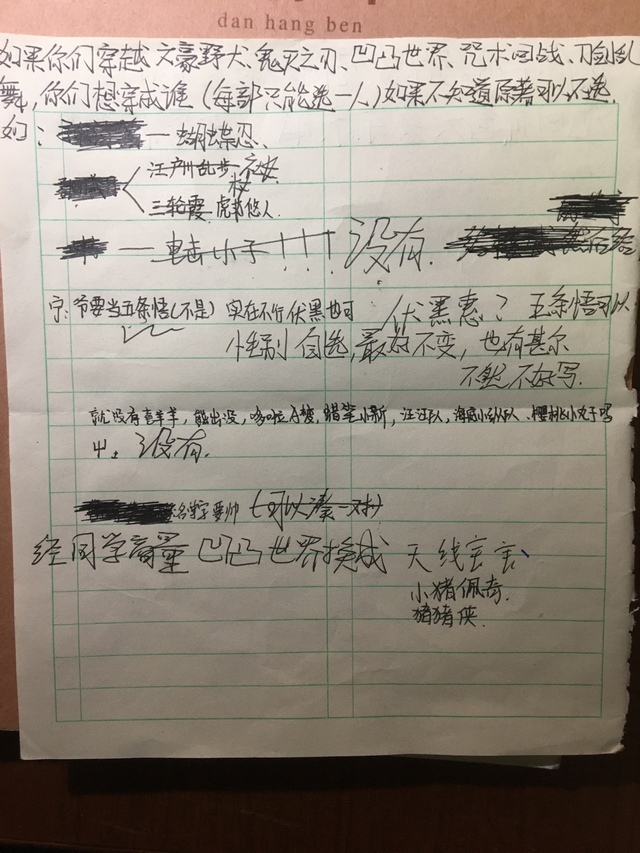 dan hang ben
如果你们穿越文豪野犬、鬼灭之刃、凹凸世界、咒术回战、刀剑乱
舞，你们想穿成谁（每部只能选一人）如果不知道原著可以不选
如：
一蝴蝶忍、
江户川乱步
三轮霞 虎杖悠人
一 击小子！！！没有.
宁：爷要当五条悟(不是) 实在不行伏黑也可 伏黑惠？五条悟可以
性别自选，最好不变，也有甚尔
不然不好写.
就没有喜羊羊，熊出没，哆啦A梦，蜡笔小新，汪汪队，海底小纵队、樱桃小丸子吗
没有.
名字要帅（可以凑一对）
经同学商量 凹凸世界换成 天线宝宝、
小猪佩奇.
猪猪侠.